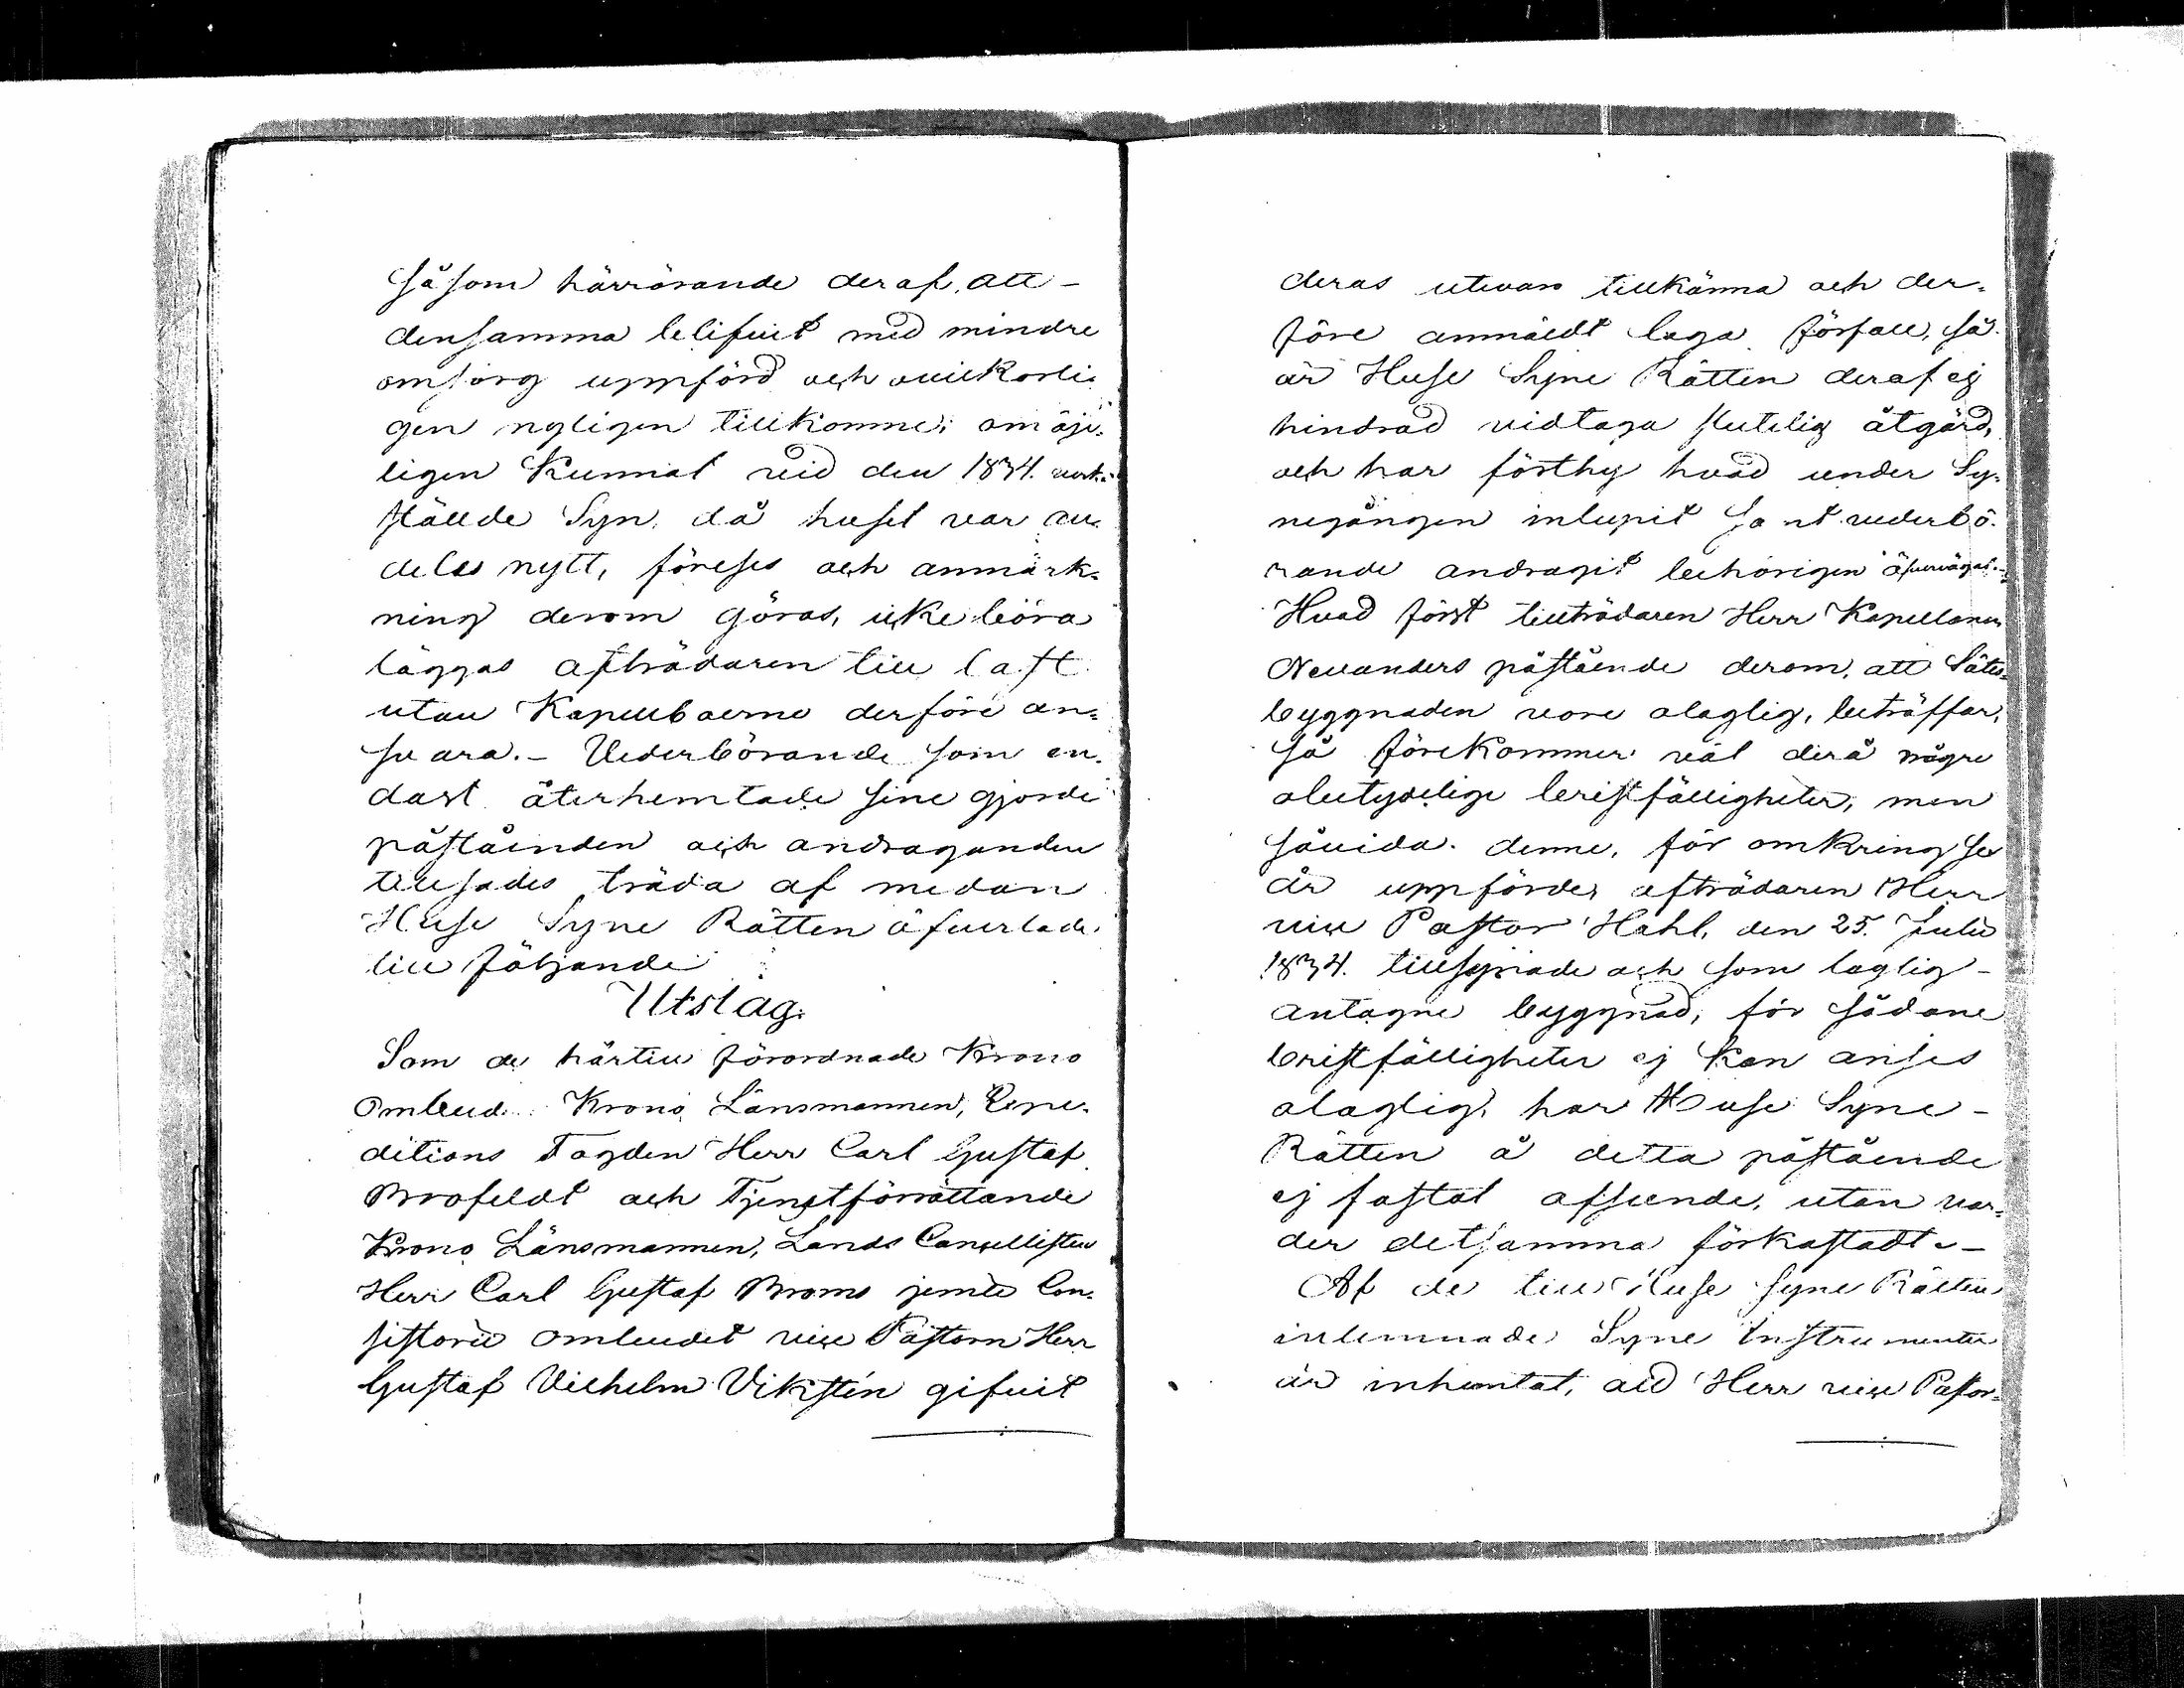 såsom härrörande deraf, att -
densamma blifvit med mindre
omsorg uppförd och ovilkorli-
gen nyligen tillkomne, omöje-
ligen kunnat vid den 1834. verk-
stälde Syn, då huset var all-
deles nytt, föreses och anmärk-
ning derom göras, icke böra
läggas afträdaren till last
utan Kapellboerne derföre an-
svara. - Vederbörande som en-
dast återhemtade sine gjorde
påståenden och andraganden
tillsades träda af medan
Huse Syne Rätten öfverlade
till följande
Utslag.
Som de härtill förordnade Krono
ombud Krono Länsmannen, Expe-
ditions Fogden Herr Carl Gustaf
Brofeldt och Tjenstförrättande
Krono Länsmannen, Lands Cancellisten
Herr Carl Gustaf Broms jemte Con-
sistorii ombudet vice Pastorn Herr
Gustaf Vilhelm Vikstén gifvit
deras utevaro tillkänna och der-
före anmäldt laga förfall, så
är Huse Syne Rätten deraf ej
hindrad vidtaga slutelig åtgärd,
och har förthy hvad under Sy-
negången inlupit samt vederbö-
rande andragit behörigen öfvervägat. -
Hvad först tillträdaren Herr Kapellanen
Nevanders påstående derom, att Sätes-
byggnaden vore olaglig, beträffar,
så förekommer väl derå någre
obetydelige bristfälligheter, men
såvida denne, för omkring sex
år uppförde, afträdaren Herr
vice Pastor Hahl, den 25. Julii
1834. tillsynade och som laglig -
antagne byggnad, för sådane
bristfälligheter ej kan anses
olaglig, har Huse Syne -
Rätten å detta påstående
ej fastat afseende, utan var-
der detsamma förkastadt. -
Af de till Huse Syne Rätten
inlemnade Syne Instrumenter
är inhemtat, att Herr vice Pastor-